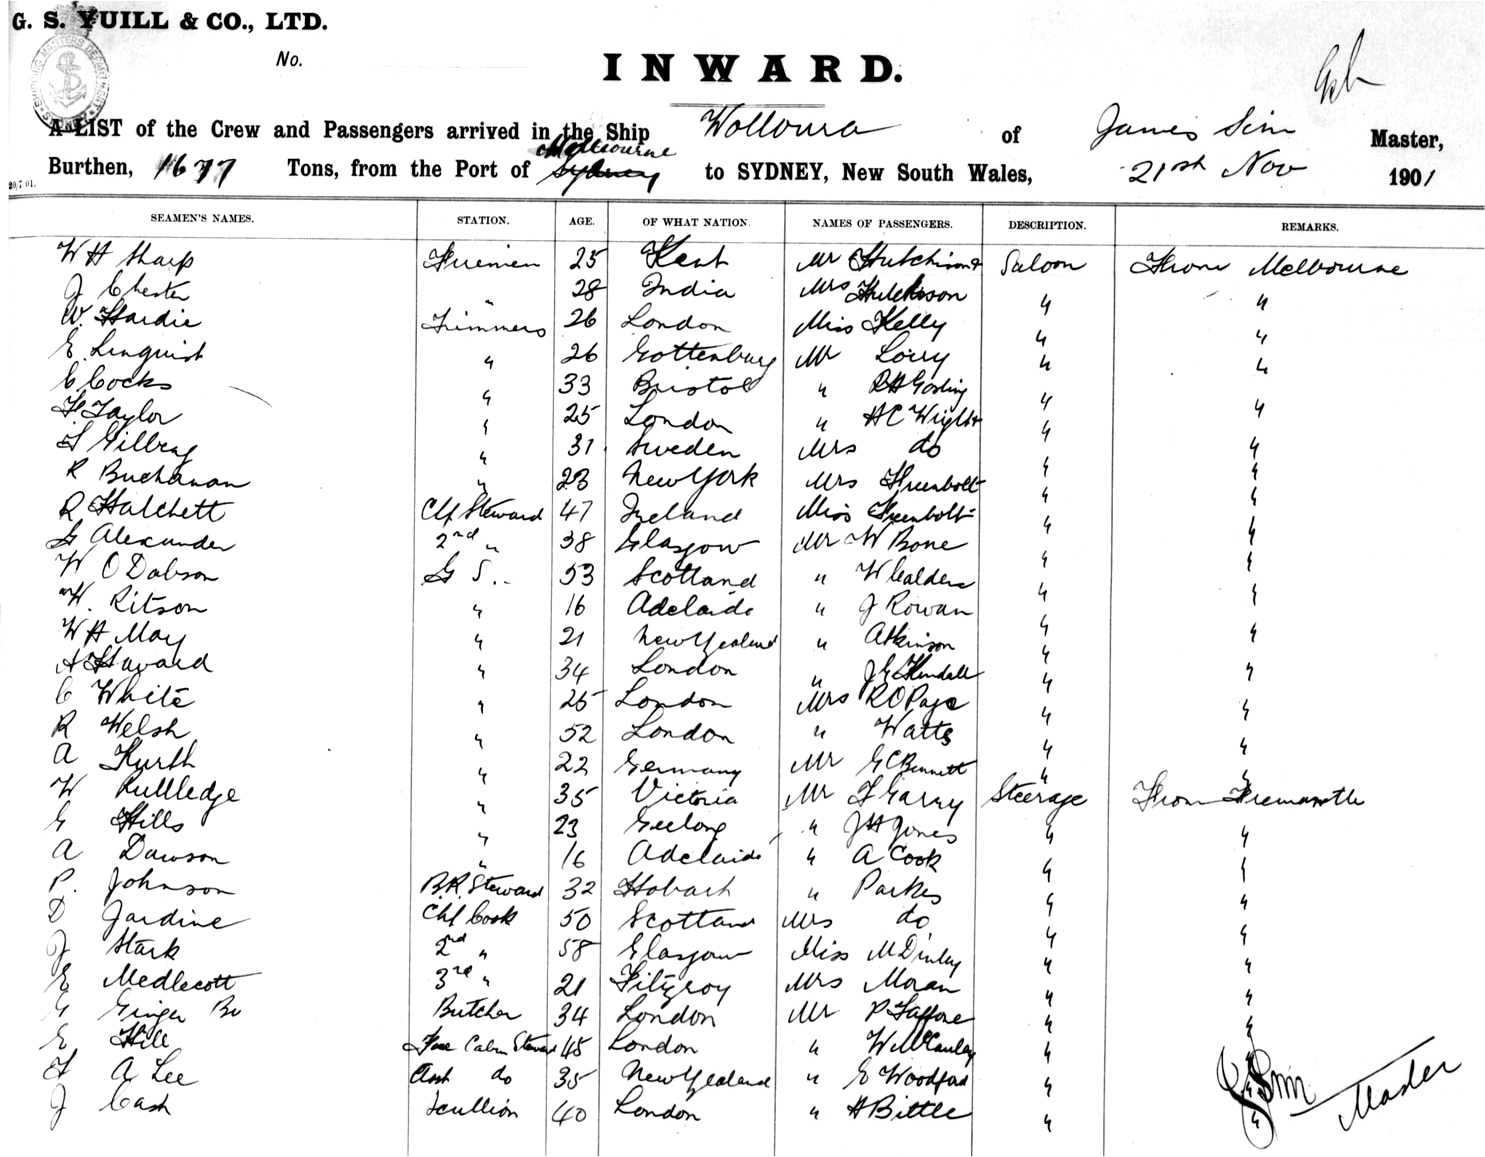 G. S. YUILL & CO., LTD.
No.
INWARD.
A LIST of the Crew and Passengers arrived in the Ship Wolloura of James Sim Master,
Burthen, 1677 Tons, from the Port of Melbourne to SYDNEY, New South Wales, 21st Nov 1901
20/7/01.
SEAMEN'S NAMES. STATION. AGE. OF WHAT NATION. NAMES OF PASSENGERS. DESCRIPTION. REMARKS.
W H Sharp Firemen 25 Kent Mr Saloon From Melbourne
J Chester " 28 India Mrs Hutchison " "
W. Hardie Trimmers 26 London Miss Kelly " "
E. Linquist " 26 Gottenburg Mr Lorry " "
C. Cocks " 33 Bristol " R H Gosling " "
F Taylor " 25 London " H C Wright " "
Gilbrag " 31 Sweden Mrs do " "
R Buchanan " 23 New York Mrs " "
R Hatchett Chf Steward 47 Ireland Miss " "
G Alexander 2nd " 38 Glasgow Mr W Bone " "
W O Dabson G S. 53 Scotland " W Calders " "
W. Ritson " 16 Adelaide " J Rowan " "
W H May " 21 New Zealand " Atkinson " "
A Havard " 34 London " J G Kendall " "
C White " 25 London Mrs R O Page " "
R Welsh " 52 London " Watts " "
A Kurth " 22 Germany Mr G C Bennett " "
W Rutledge " 35 Victoria Mr F Garry Steerage From Fremantle
G Hills " 23 Geelong " J H Jones " "
A Dawson " 16 Adelaide " A Cook " "
P. Johnson B.R. Steward 32 Hobart " Parkes " "
D Jardine Chf Cook 50 Scotland Mrs do " "
J Stark 2nd " 58 Glasgow Miss M Dinley " "
E Medlecott 3rd " 21 Fitzroy Mrs Moran " "
G Ginger Butcher 34 London Mr P " "
E Hill Fore Cabin Steward 45 London " W McCauley "
F A Lee Asst do 35 New Zealand " E Woodford "
J Cash Scullion 40 London " H Bittle "
J Sim
Master